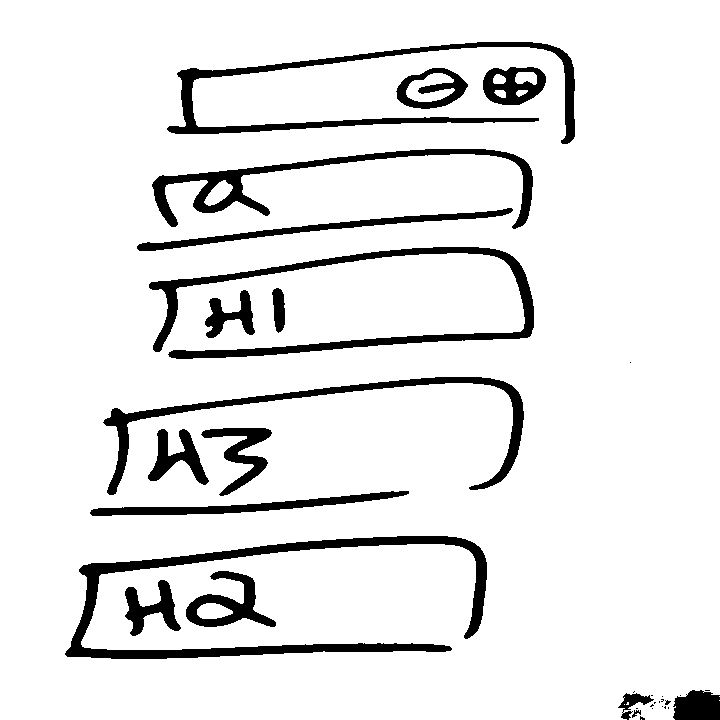 a
H1
H3
H2